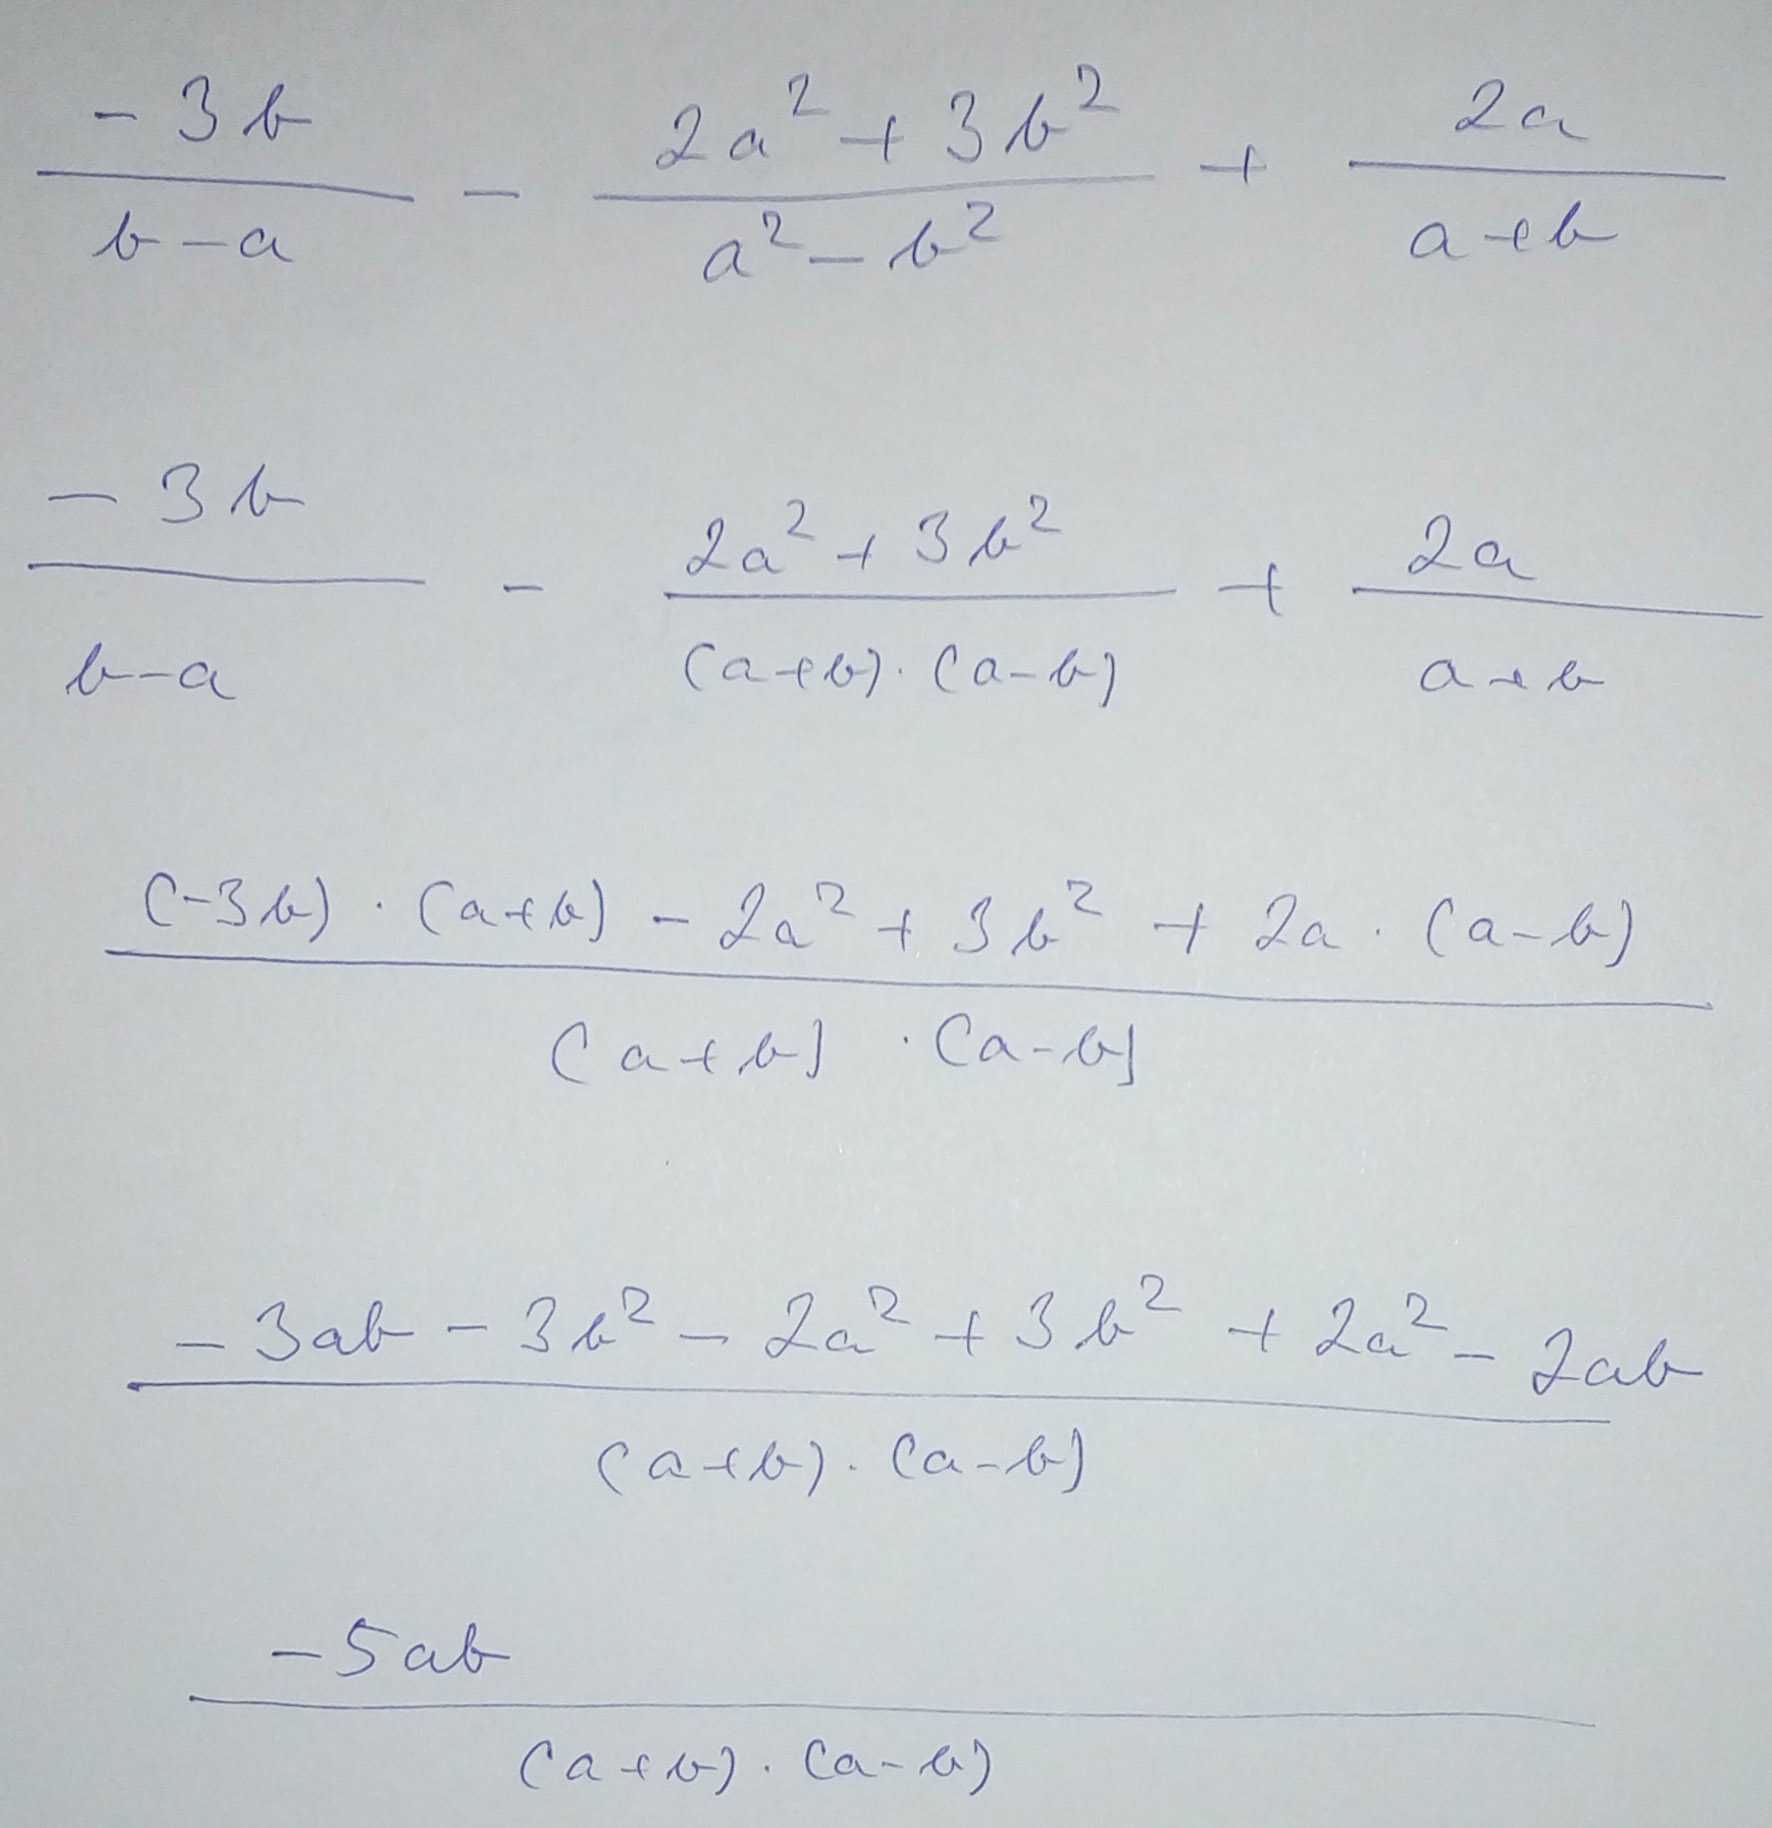 -3b/(b-a) - (2a²+3b²)/(a²-b²) + 2a/(a+b)
-3b/(b-a) - (2a²+3b²)/((a+b)·(a-b)) + 2a/(a+b)
((-3b)·(a+b) - 2a²+3b² + 2a·(a-b))/((a+b)·(a-b))
(-3ab - 3b² - 2a² + 3b² + 2a² - 2ab)/((a+b)·(a-b))
-5ab/((a+b)·(a-b))